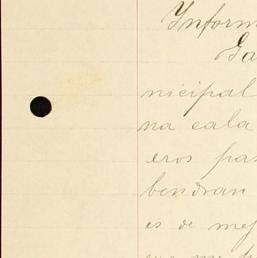 Inform
Ga
nicipal
na cala
eros pas
bendran
es de mej